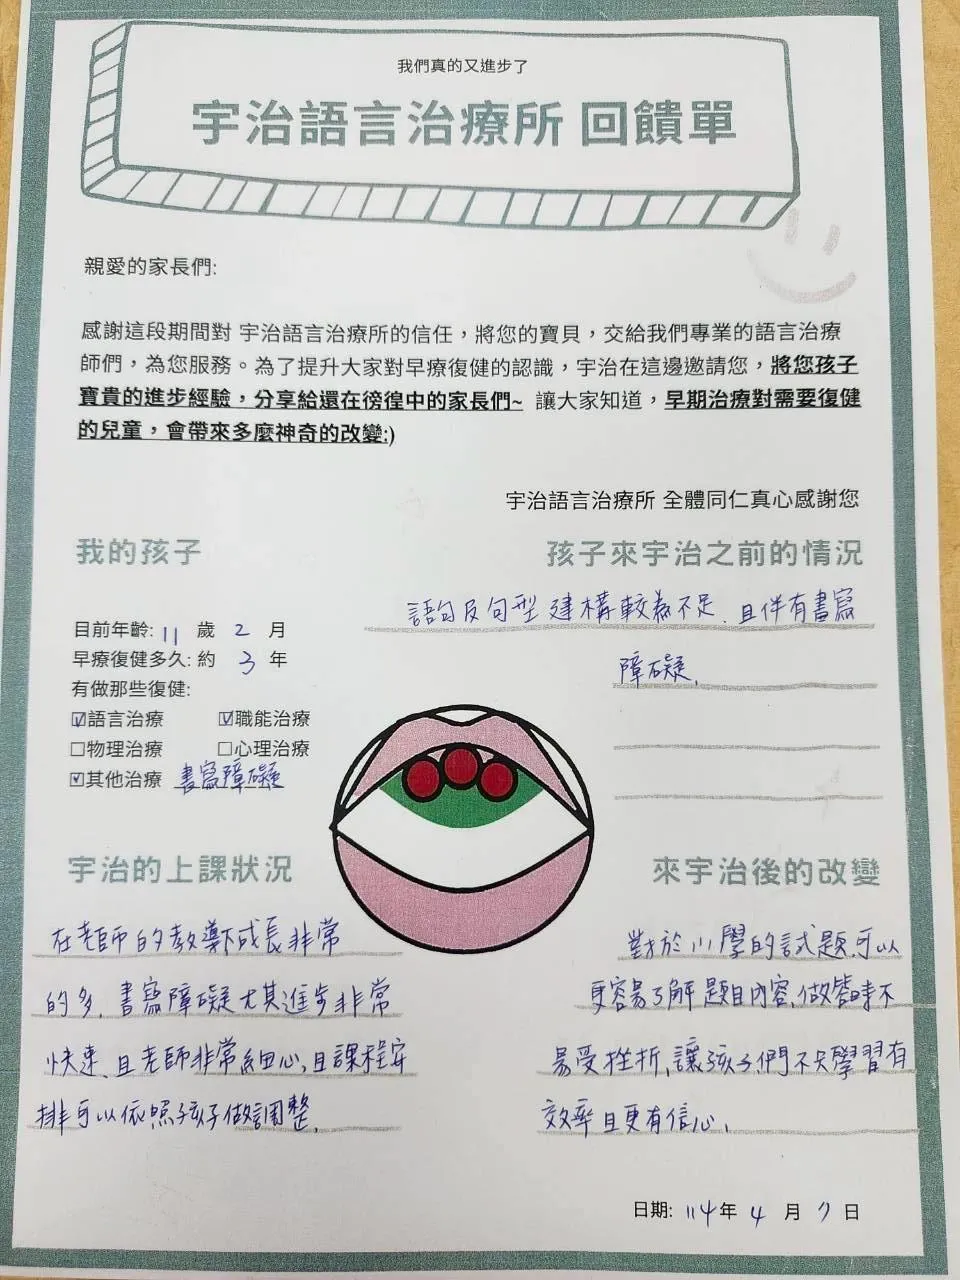 我們真的又進步了
宇治語言治療所 回饋單
親愛的家長們:
感謝這段期間對 宇治語言治療所的信任，將您的寶貝，交給我們專業的語言治療
師們，為您服務。為了提升大家對早療復健的認識，宇治在這邊邀請您，將您孩子
寶貴的進步經驗，分享給還在徬徨中的家長們~ 讓大家知道，早期治療對需要復健
的兒童，會帶來多麼神奇的改變:)
宇治語言治療所 全體同仁真心感謝您
我的孩子
目前年齡: 11 歲 2 月
早療復健多久: 約 3 年
有做那些復健:
☑語言治療 ☑職能治療
☐物理治療 ☐心理治療
☑其他治療 書寫障礙
孩子來宇治之前的情況
語句及句型建構較為不足、且伴有書寫
障礙、
宇治的上課狀況
在老師的教導下成長非常
的多、書寫障礙尤其進步非常
快速、且老師非常細心、且課程安
排可以依照孩子做調整、
來宇治後的改變
對於小學的試題可以
更容易了解題目內容、做答時不
易受挫折、讓孩子們不失學習有
效率且更有信心、
日期: 114年 4 月 7 日